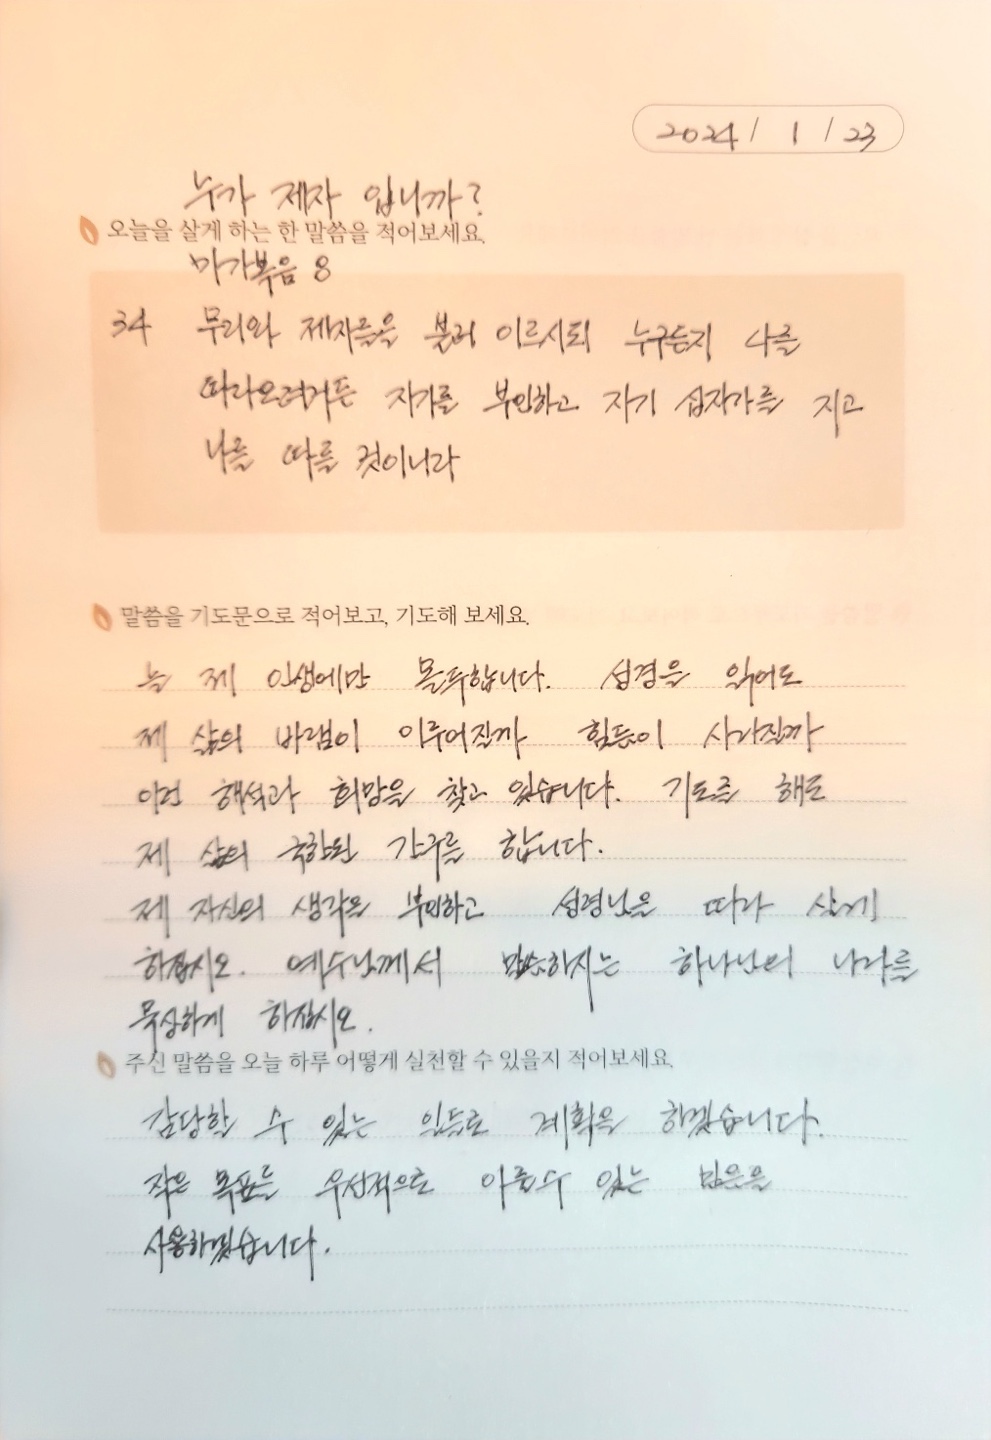 2024 / 1 / 23
누가 제자 입니까?
오늘을 살게 하는 한 말씀을 적어보세요.
마가복음 8
34 무리와 제자들을 불러 이르시되 누구든지 나를
따라오려거든 자기를 부인하고 자기 십자가를 지고
나를 따를 것이니라
말씀을 기도문으로 적어보고, 기도해 보세요.
늘 제 인생에만 몰두합니다. 성경을 읽어도
제 삶의 바램이 이루어질까 힘듦이 사라질까
이런 해석과 희망을 찾고 있습니다. 기도를 해도
제 삶의 국한된 간구를 합니다.
제 자신의 생각을 부인하고 성령님을 따라 살게
하십시오. 예수님께서 말씀하시는 하나님의 나라를
묵상하게 하십시오.
주신 말씀을 오늘 하루 어떻게 실천할 수 있을지 적어보세요.
감당할 수 있는 일들로 계획을 하겠습니다.
작은 목표를 우선적으로 이룰수 있는 믿음을
사용하겠습니다.